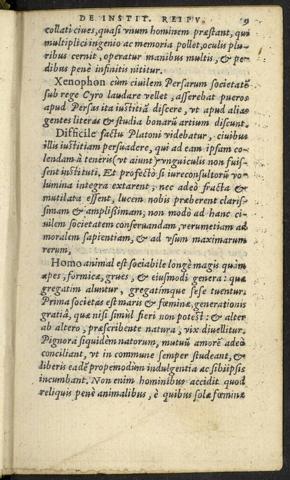 DE INSTIT. REIPV. 9
collati ciues, quasi vnum hominem præstant, qui
multiplici ingenio ac memoria pollet, oculis plu-
ribus cernit, operatur manibus multis, & pe-
dibus penè infinitis nititur.
Xenophon cùm ciuilem Persarum societatē
sub rege Cyro laudare vellet, asserebat pueros
apud Persas ita iustitiā discere, vt apud alias
gentes literas & studia bonarū artium discunt.
Difficile factu Platoni videbatur, ciuibus
illis iustitiam persuadere, qui ad eam ipsam co-
lendam à teneris vt aiunt vnguiculis non fuis-
sent instituti. Et profectò si iureconsultorū vo-
lumina integra extarent, nec adeò fracta &
mutilata essent, lucem nobis præberent claris-
simam & amplißimam, non modò ad hanc ci-
uilem societatem conseruandam, verumetiam ad
moralem sapientiam, & ad vsum maximarum
rerum.
Homo animal est sociabile longè magis quàm
apes, formicæ, grues, & eiusmodi genera quæ
gregatim aluntur, gregatimque sese tuentur.
Prima societas est maris & fœminæ, generationis
gratiâ, quæ nisi simùl fieri non potest: & alter
ab altero, præscribente natura, vix diuellitur.
Pignora siquidem natorum, mutuū amorē adeò
conciliant, vt in commune semper studeant, &
liberis eadē propemodùm indulgentia ac sibiipsis
incumbant. Non enim hominibus accidit quod
reliquis penè animalibus, è quibus solæ fœminæ